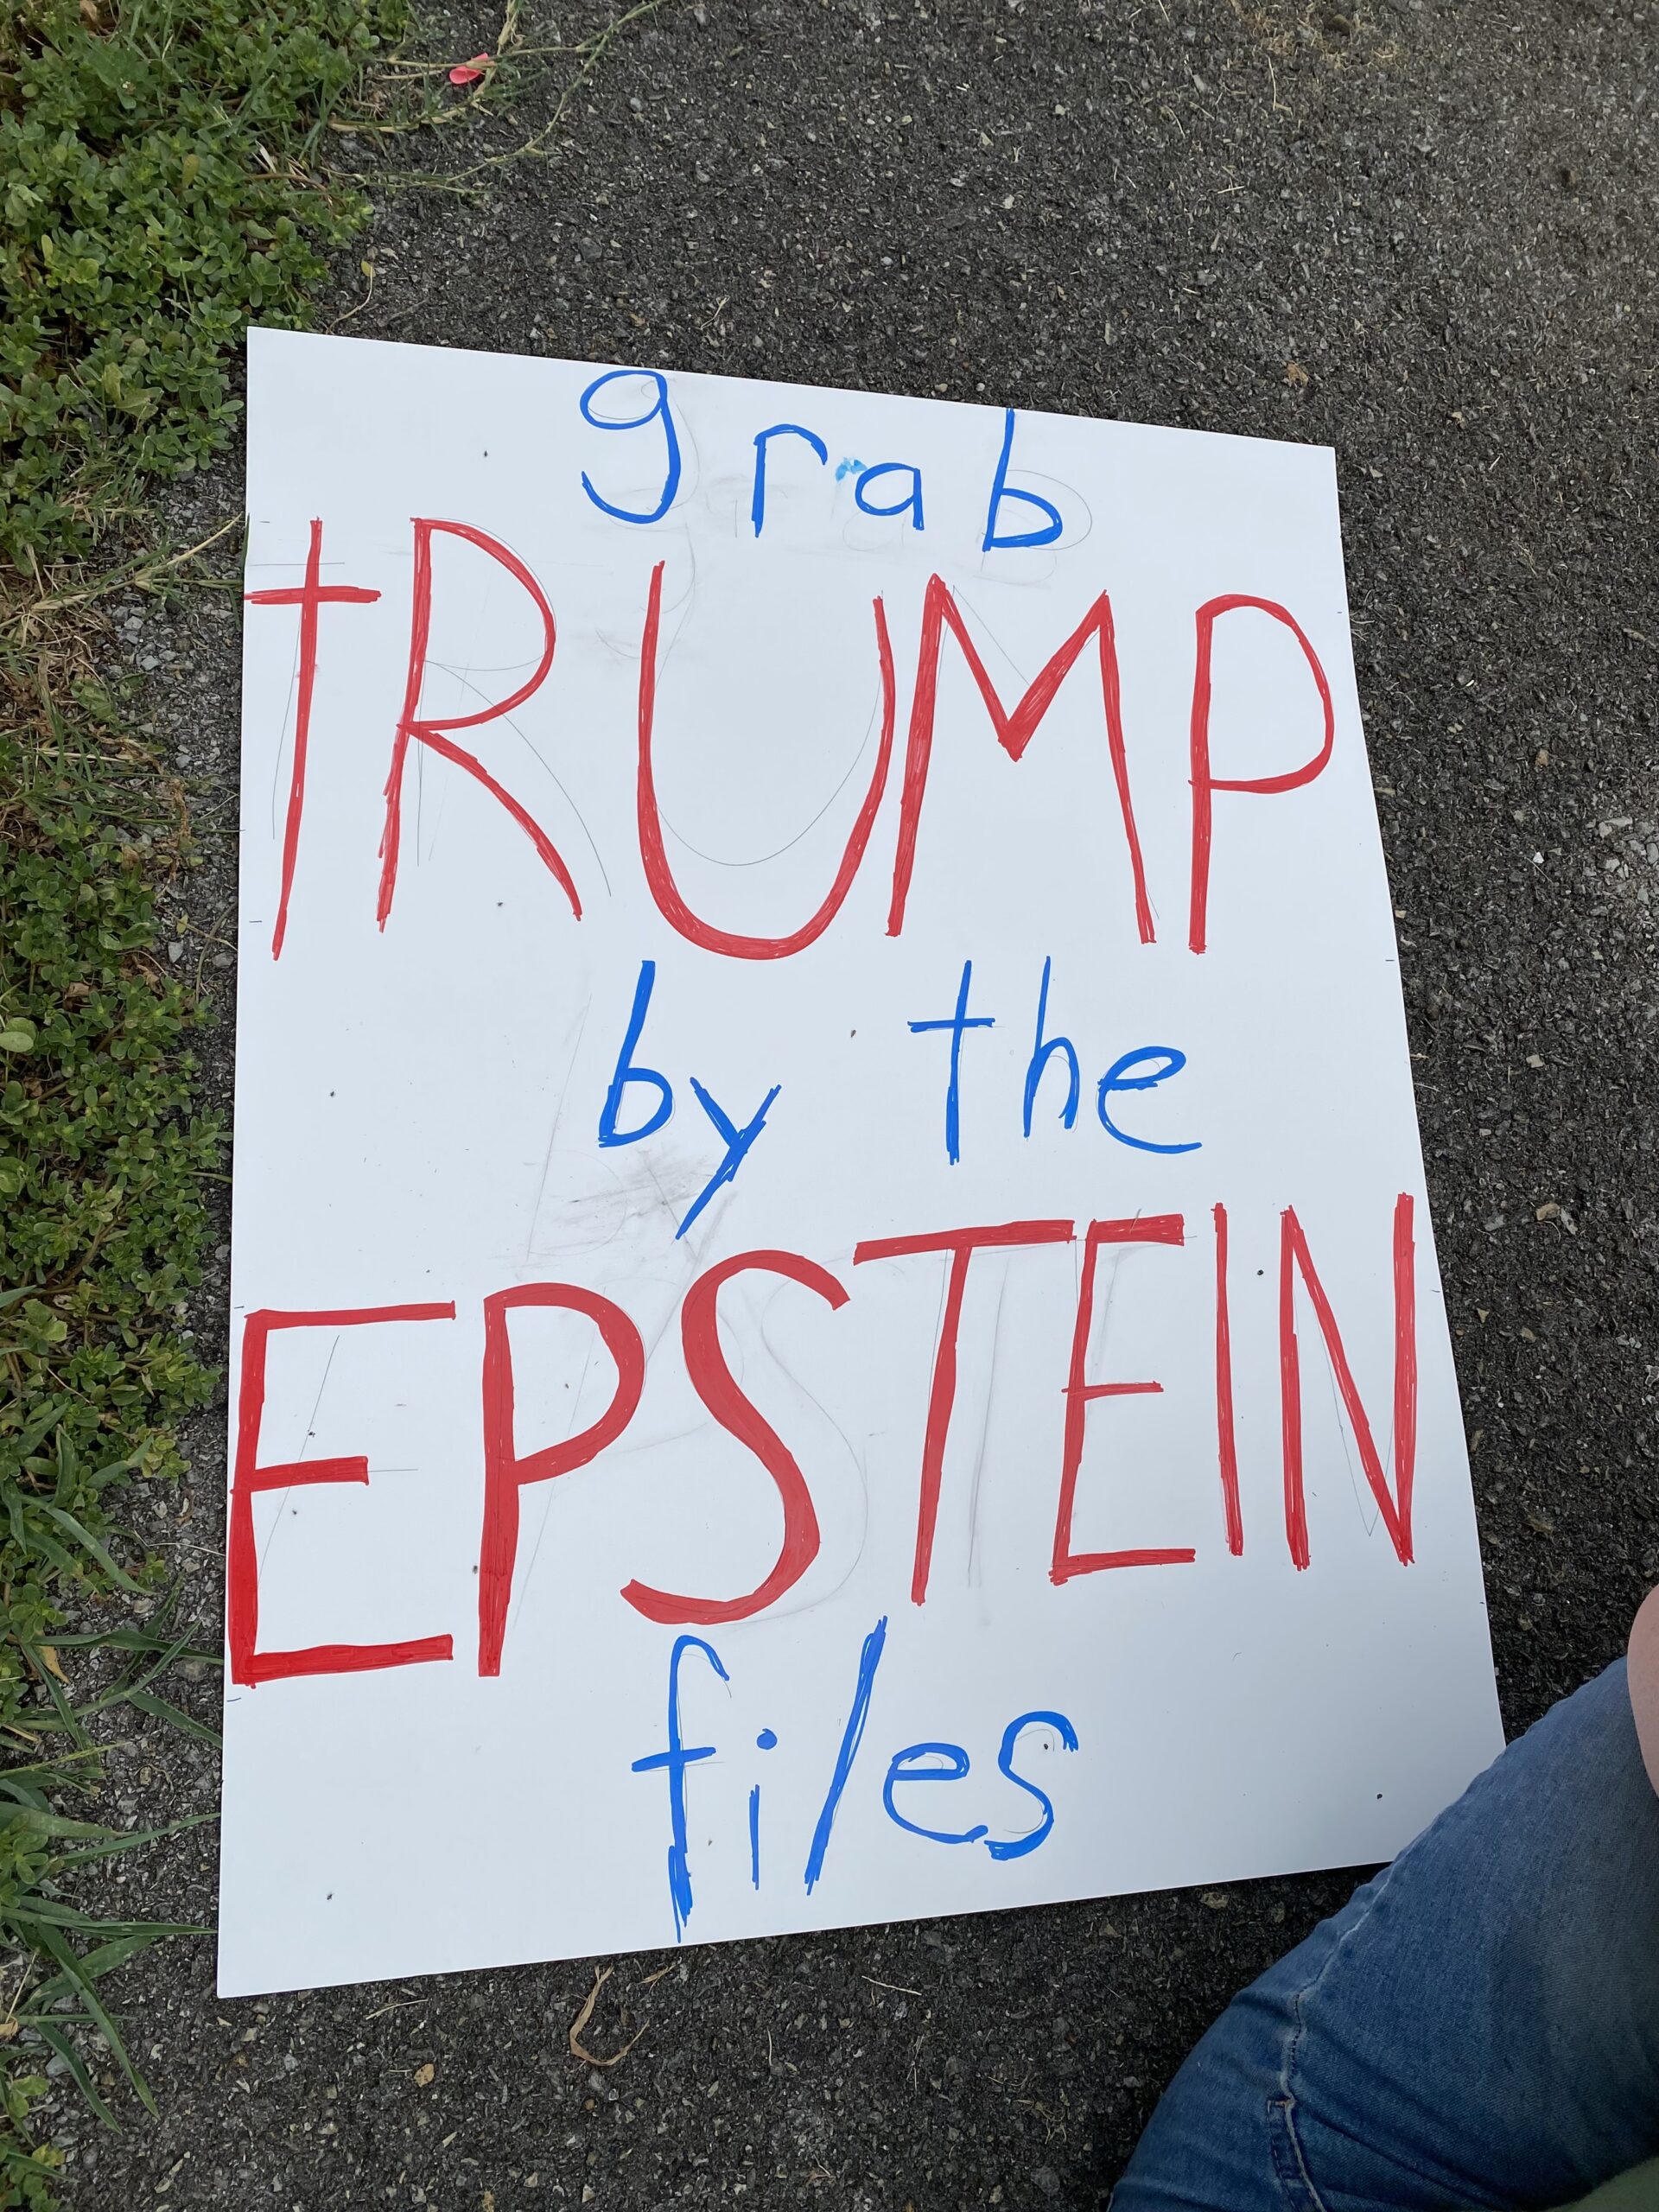 grab
tRUMP
by the
EPSTEIN
files